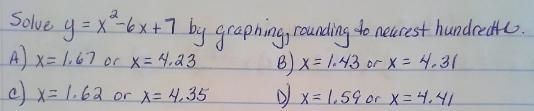 Solve y = x²-6x+7 by graphing, rounding to nearest hundredth.
A) x= 1.67 or x= 4.23 B) x= 1.43 or x= 4.31
c) x= 1.62 or x= 4.35 D) x= 1.59 or x= 4.41